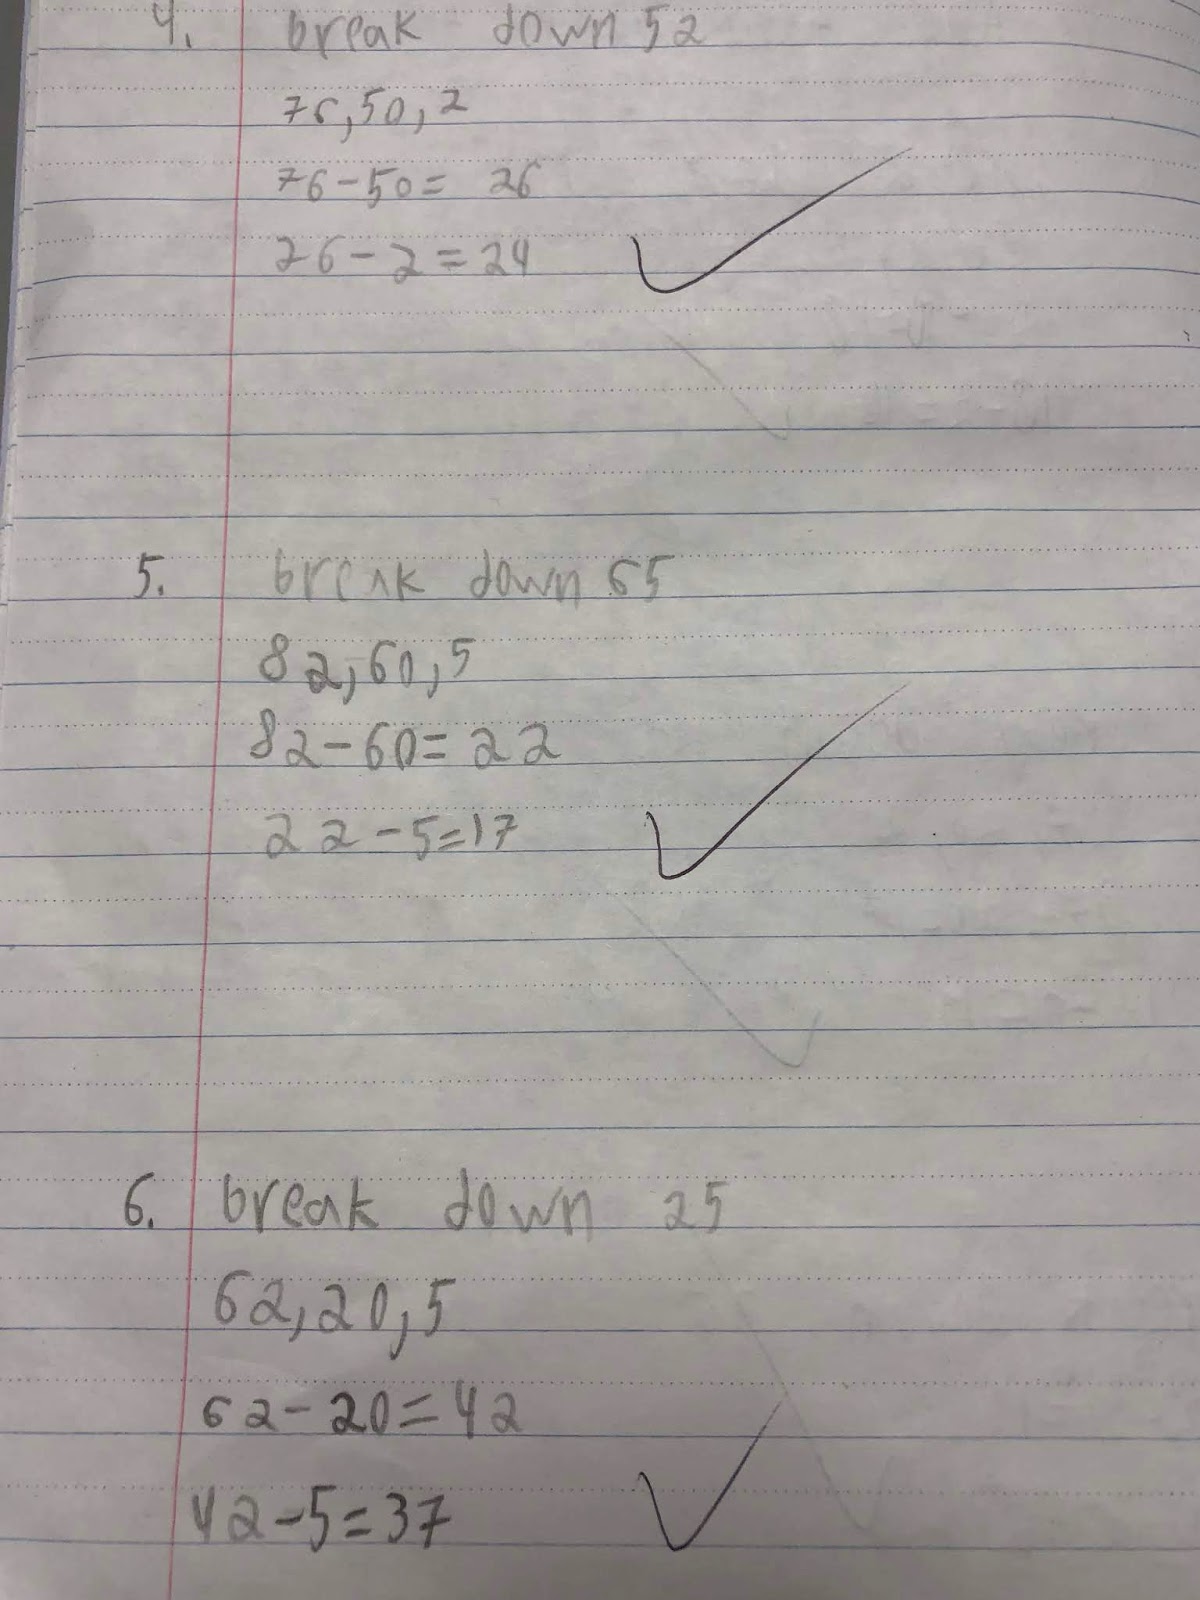 4. break down 52
76,50,2
76-50= 26
26-2=24
5. break down 65
82,60,5
82-60=22
22-5=17
6. break down 25
62,20,5
62-20=42
42-5=37